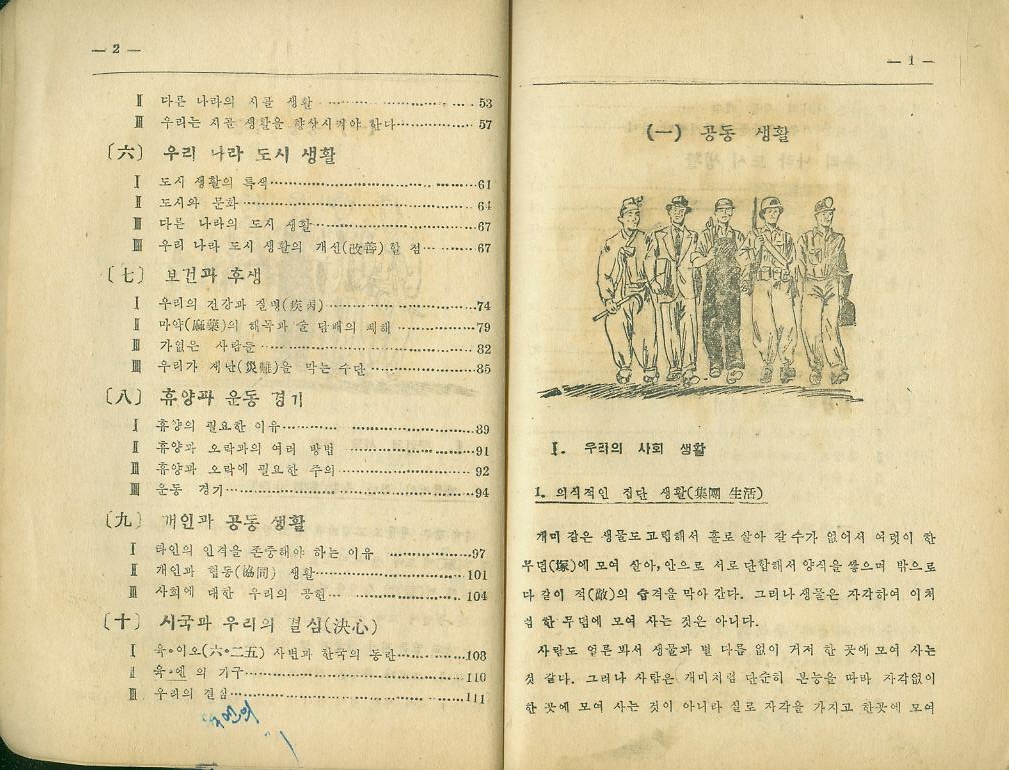 — 2 —
Ⅱ 다른 나라의 시골 생활 53
Ⅲ 우리는 시골 생활을 향상시켜야 한다 57
〔六〕 우리 나라 도시 생활
Ⅰ 도시 생활의 특색 61
Ⅱ 도시와 문화 64
Ⅲ 다른 나라의 도시 생활 67
Ⅲ 우리 나라 도시 생활의 개선(改善)할 점 67
〔七〕 보건과 후생
Ⅰ 우리의 건강과 질병(疾病) 74
Ⅱ 마약(麻藥)의 해독과 술 담배의 폐해 79
Ⅲ 가엾은 사람들 82
Ⅲ 우리가 재난(災難)을 막는 수단 85
〔八〕 휴양과 운동 경기
Ⅰ 휴양의 필요한 이유 89
Ⅱ 휴양과 오락과의 여러 방법 91
Ⅲ 휴양과 오락에 필요한 주의 92
Ⅲ 운동 경기 94
〔九〕 개인과 공동 생활
Ⅰ 타인의 인격을 존중해야 하는 이유 97
Ⅱ 개인과 협동(協同) 생활 101
Ⅲ 사회에 대한 우리의 공헌 104
〔十〕 시국과 우리의 결심(決心)
Ⅰ 육•이오(六•二五) 사변과 한국의 동란 108
Ⅱ 육•엔의 기구 110
Ⅲ 우리의 결심 111
— 1 —
(一) 공동 생활
Ⅰ. 우리의 사회 생활
1. 의식적인 집단 생활(集團 生活)
개미 같은 생물도 고립해서 홀로 살아 갈 수가 없어서 여럿이 한
무덤(塚)에 모여 살아, 안으로 서로 단합해서 양식을 쌓으며 밖으로
다 같이 적(敵)의 습격을 막아 간다. 그러나 생물은 자각하여 이처
럼 한 무덤에 모여 사는 것은 아니다.
사람도 얼른 봐서 생물과 별 다름 없이 거저 한 곳에 모여 사는
것 같다. 그러나 사람은 개미처럼 단순히 본능을 따라 자각없이
한 곳에 모여 사는 것이 아니라 실로 자각을 가지고 한곳에 모여